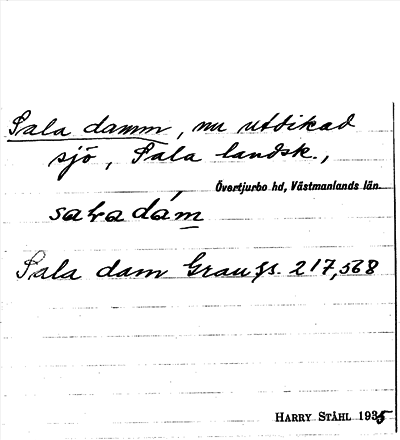 Sala damm, nu utdikad
sjö, Sala landsk.,
Övertjurbo hd, Västmanlands län.
sala dám
Sala dam Grau §s. 217,568
HARRY STÅHL 1935